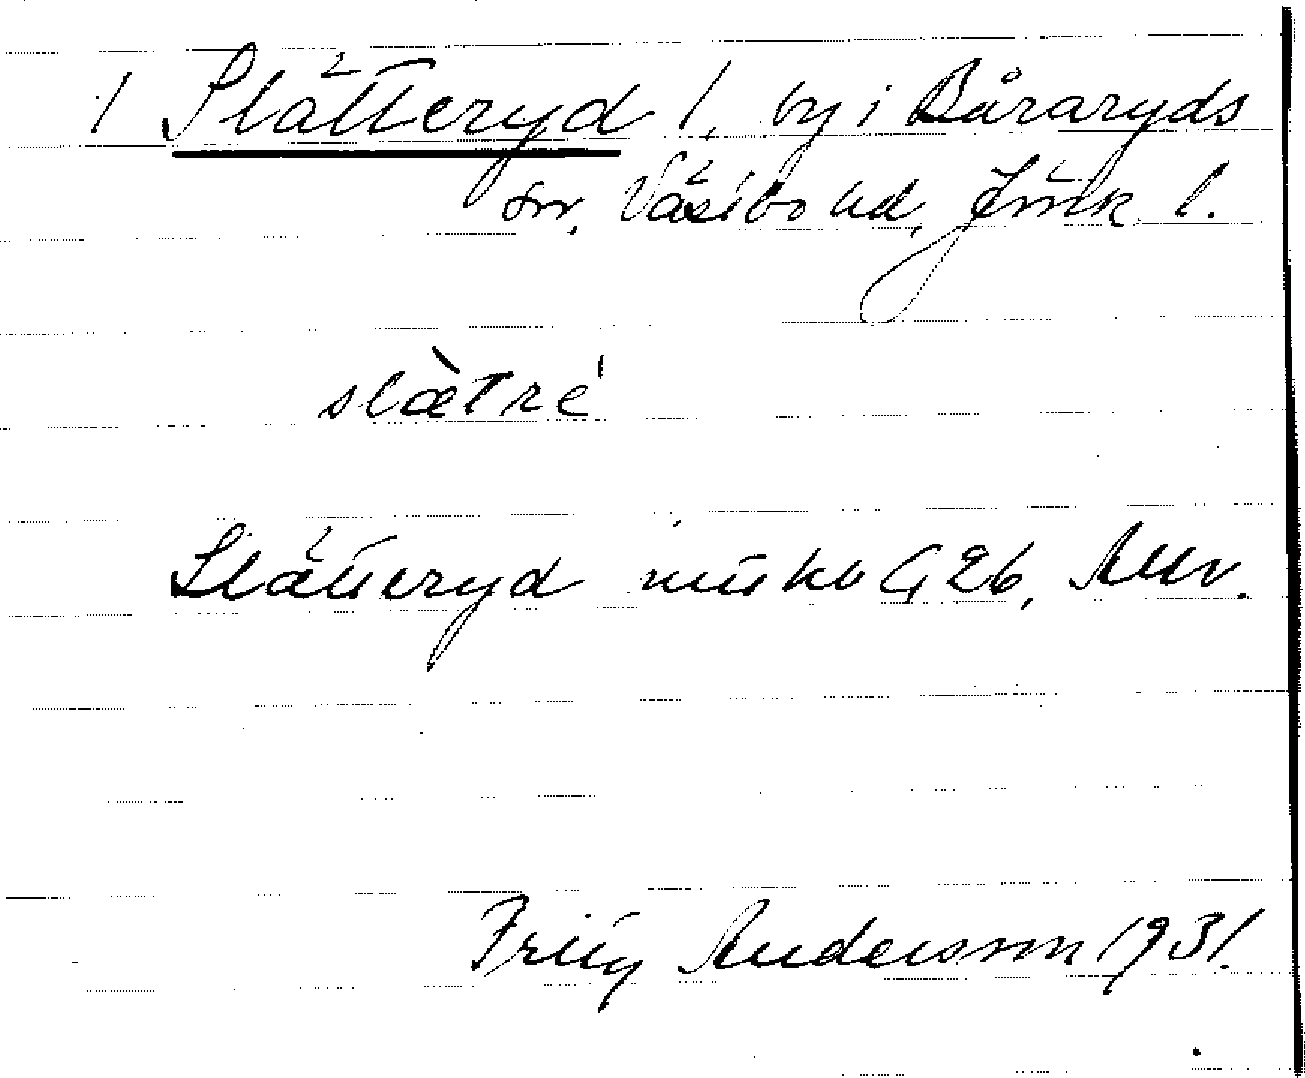 1 Slätteryd 1, by i Båraryds
sn, Västbo hd, Jönk. l.
slæ̀tré
Slätteryd
Fritiof Andersson 1931.